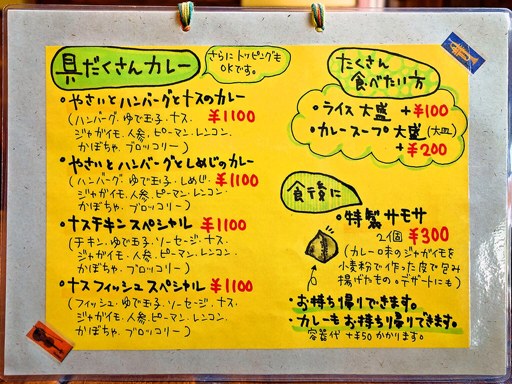 具だくさんカレー
さらにトッピングも
OKです。
・やさいとハンバーグとナスのカレー
(ハンバーグ、ゆで玉子、ナス、 ¥1100
ジャガイモ、人参、ピーマン、レンコン、
かぼちゃ、ブロッコリー)
・やさいとハンバーグとしめじのカレー
(ハンバーグ、ゆで玉子、しめじ、 ¥1100
ジャガイモ、人参、ピーマン、レンコン、
かぼちゃ、ブロッコリー)
・ナスチキンスペシャル ¥1100
(チキン、ゆで玉子、ソーセージ、ナス、
ジャガイモ、人参、ピーマン、レンコン、
かぼちゃ、ブロッコリー)
・ナスフィッシュスペシャル ¥1100
(フィッシュ、ゆで玉子、ソーセージ、ナス、
ジャガイモ、人参、ピーマン、レンコン、
かぼちゃ、ブロッコリー)
たくさん
食べたい方
・ライス大盛 +¥100
・カレースープ大盛(大皿)
+¥200
食後に
・特製サモサ
2個 ¥300
(カレー味のジャガイモを
小麦粉で作った皮で包み
揚げたもの。デザートにも)
・お持ち帰りできます。
・カレーもお持ち帰りできます。
容器代 +¥50 かかります。